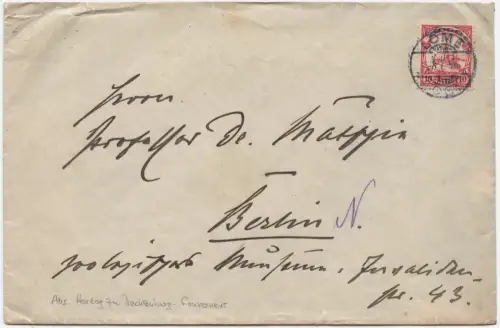 LOME
10
Herrn
Professor Dr. Matschie
Berlin N.
zoologisches Museum, Invaliden-
str. 43.
Abs. Herzog zu Mecklenburg - Gouverneur